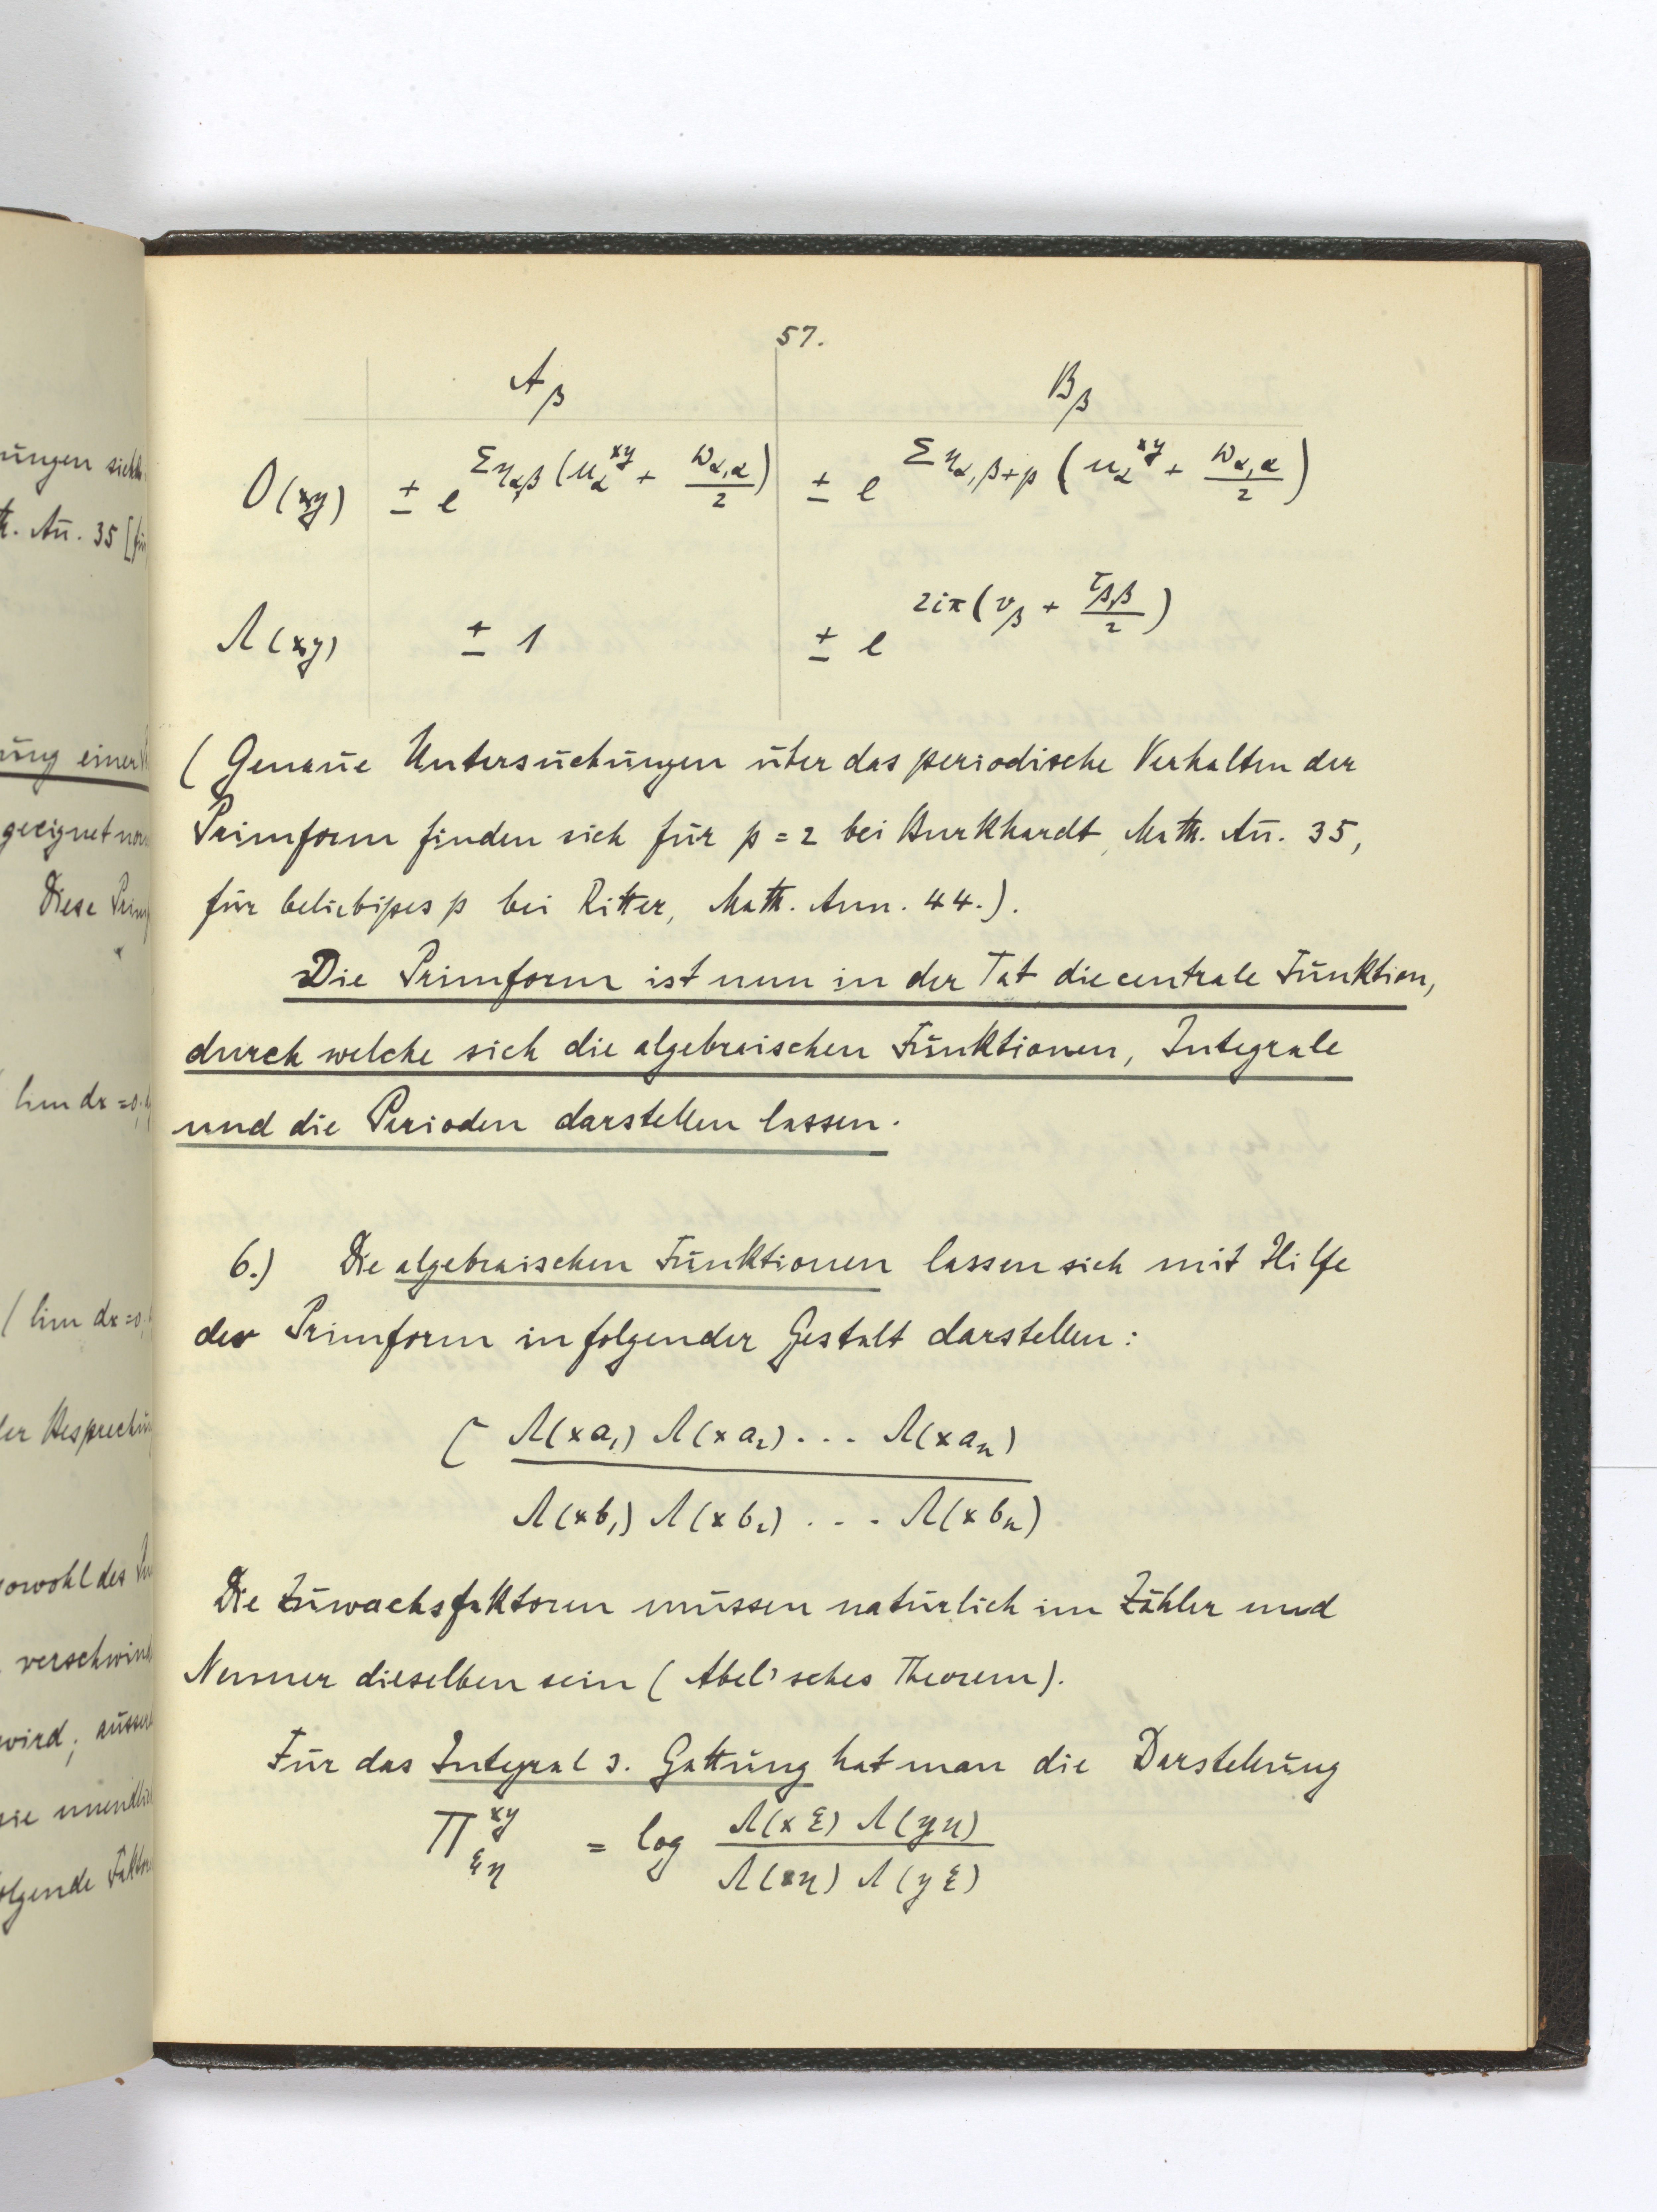 ungen sich
Ann. 35 [für
ung einer
geeignet nor
Diese Prim
lim dx = 0
( lim dx = 0
der Besprechun
sowohl des
verschwind
wird; ausser
sie unendlich
olgende Faktor
57.
A_β B_β
O(xy) ± e^{Σ η_{α,β} (u_α^{xy} + ω_{α,α}/2)} ± e^{Σ η_{α,β+p} (u_α^{xy} + ω_{α,α}/2)}
Λ(xy) ± 1 ± e^{2iπ(v_β + τ_{β,β}/2)}
( Genaue Untersuchungen über das periodische Verhalten der
Primform finden sich für p = 2 bei Burkhardt, Math. An̄. 35,
für beliebiges p bei Ritter, Math. Ann. 44.).
Die Primform ist nun in der Tat die centrale Funktion,
durch welche sich die algebraischen Funktionen, Integrale
und die Perioden darstellen lassen.
6.) Die algebraischen Funktionen lassen sich mit Hilfe
der Primform in folgender Gestalt darstellen:
C Λ(xa₁) Λ(xa₂) . . . Λ(xaₙ)
Λ(xb₁) Λ(xb₂) . . . Λ(xbₙ)
Die Zuwachsfaktoren müssen natürlich im Zähler und
Nenner dieselben sein ( Abel'sches Theorem).
Für das Integral 3. Gattung hat man die Darstellung
Π^{xy}_{ξη} = log Λ(xξ) Λ(yη) / Λ(xη) Λ(yξ)